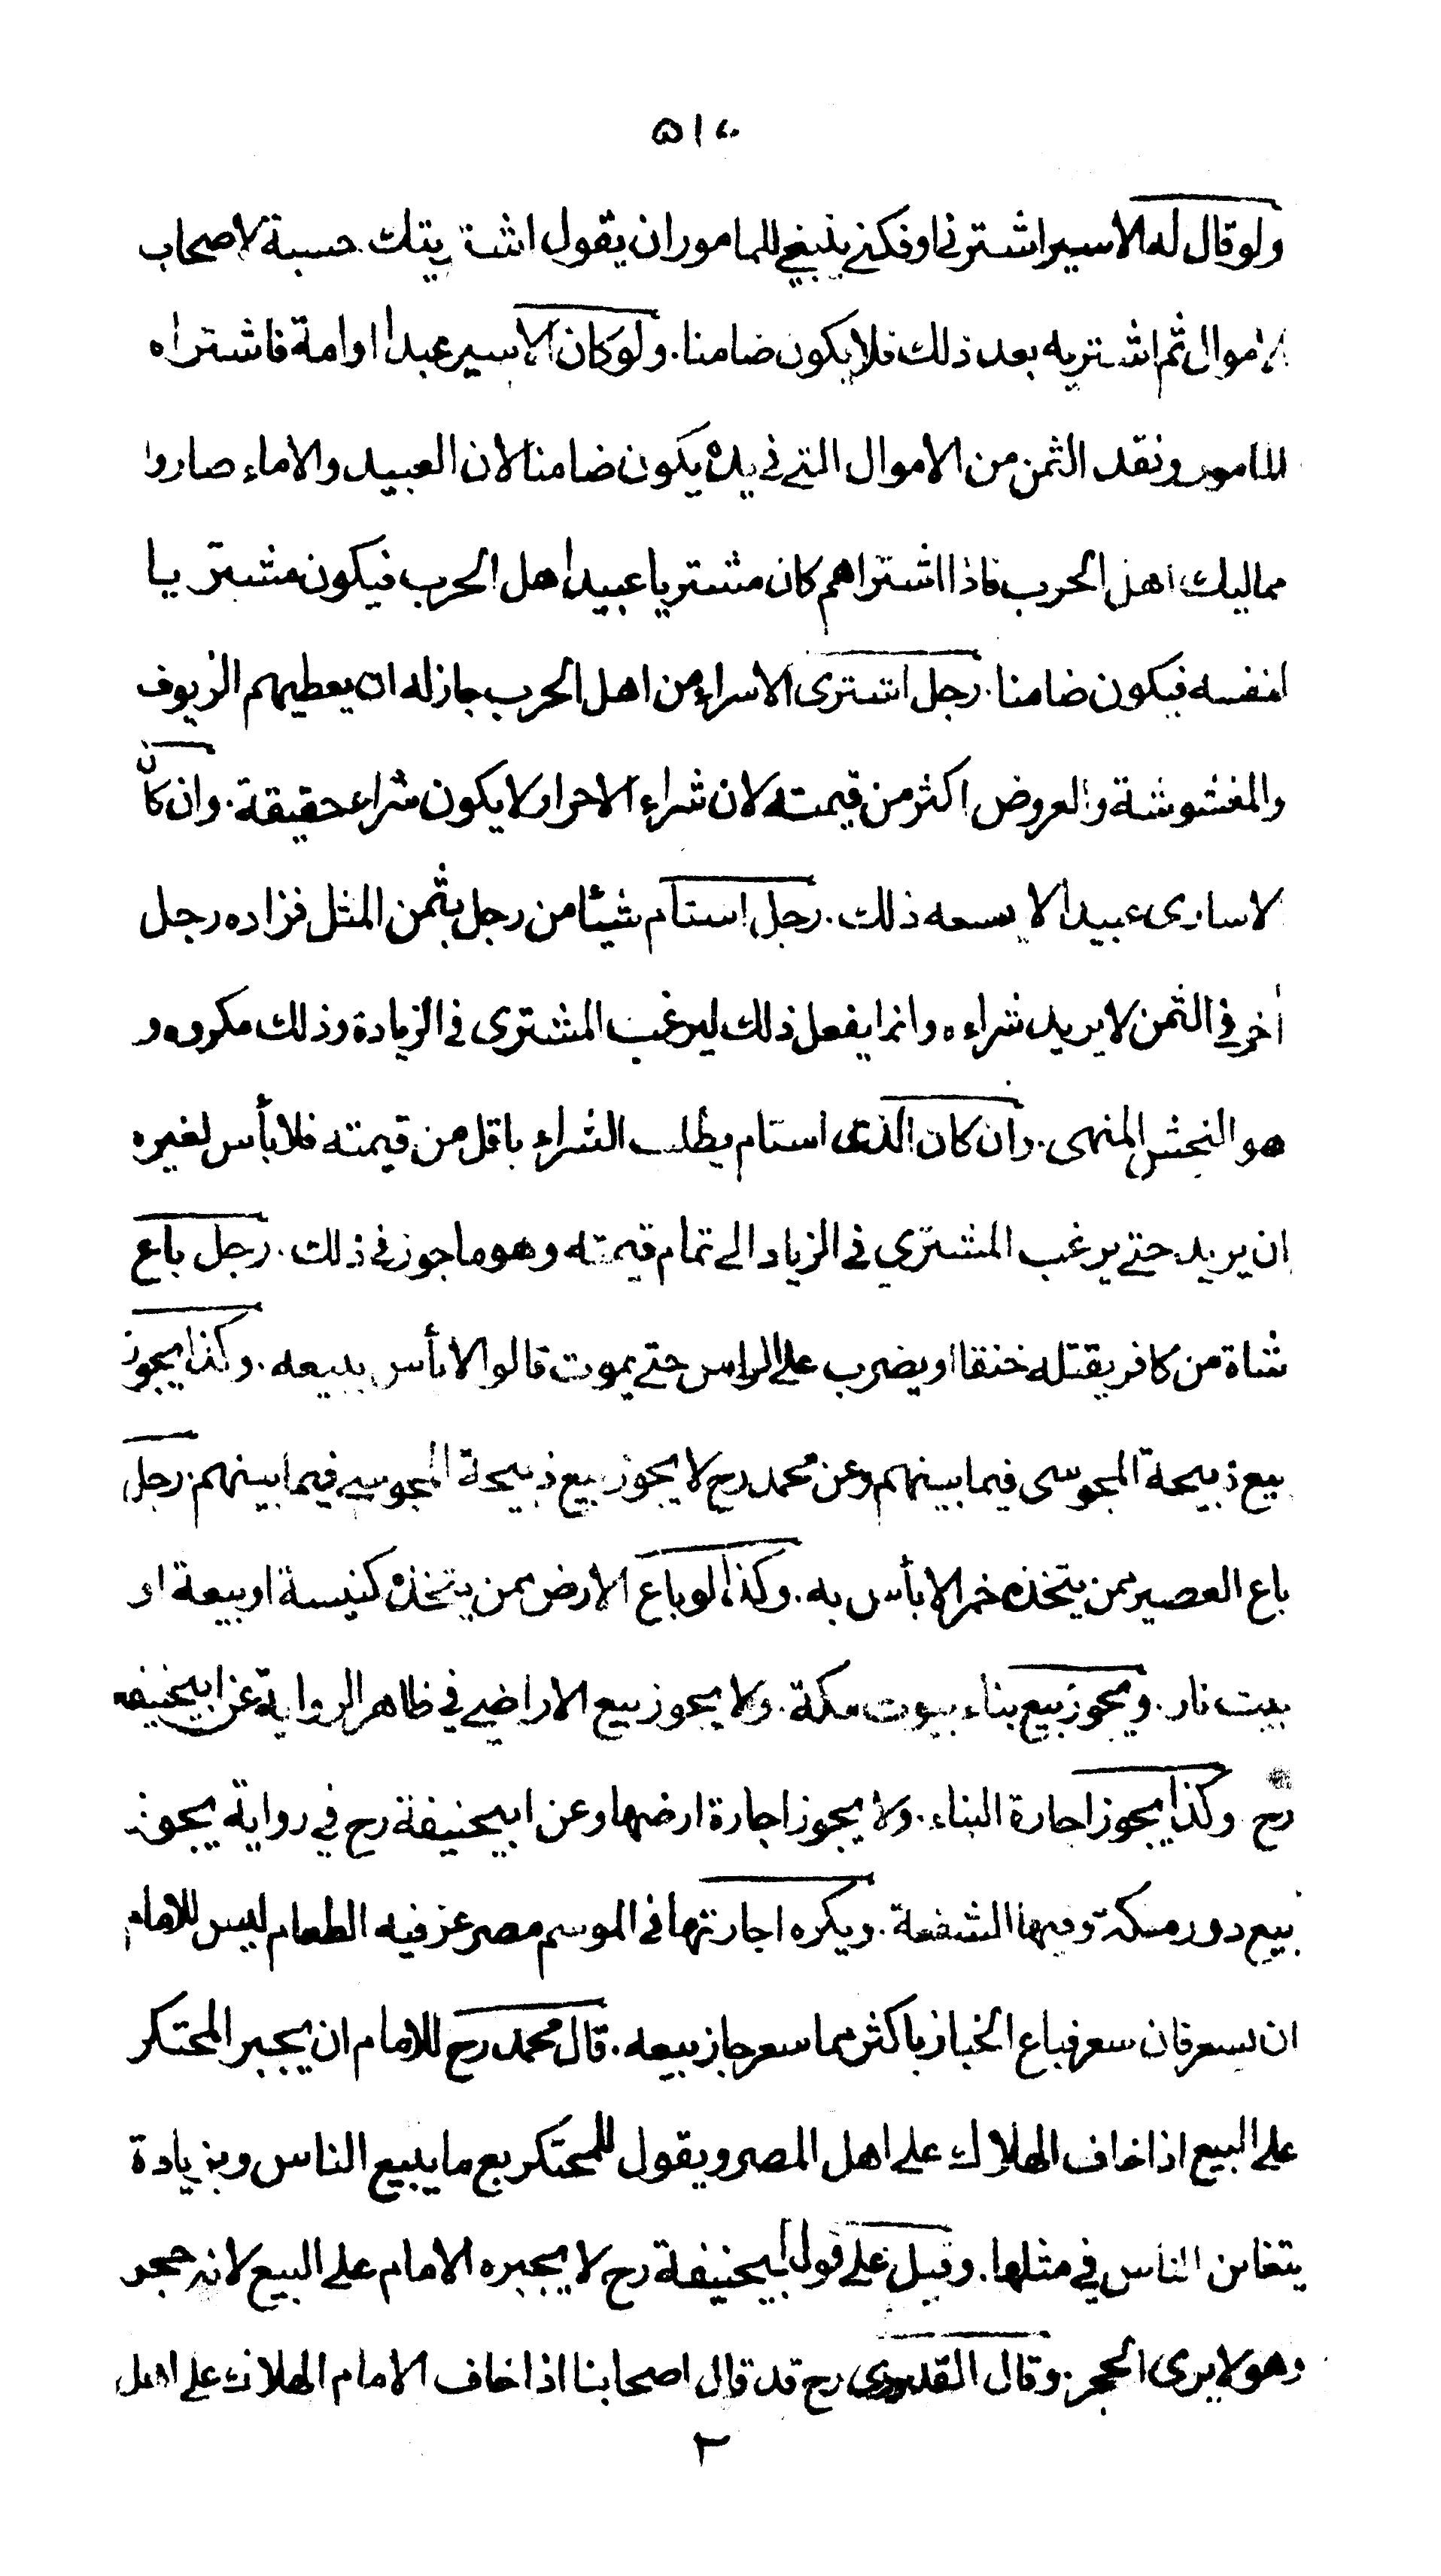 ٥١٤
ولو قال له الاسير اشترنى اوفكنى ينبغي للمامور ان يقول اشتريتك حسبة لاصحاب
الاموال ثم اشتريه بعد ذلك فلا يكون ضامنا. ولو كان الاسير عبدا او امة فاشتراه
المامور ونقد الثمن من الاموال التي في يده يكون ضامنا لان العبيد والاماء صاروا
مماليك اهل الحرب فاذا اشتراهم كان مشتريا عبيد اهل الحرب فيكون مشتريا
لنفسه فيكون ضامنا. رجل اشترى الاسراء من اهل الحرب جاز له ان يعطيهم الزيوف
والمغشوشة والعروض اكثر من قيمته لان شراء الاحرار لا يكون شراء حقيقة. وان كان
لاسارى عبيدا لا يسعه ذلك. رجل استام شيئا من رجل بثمن المثل فزاده رجل
أخر في الثمن لا يريد شراءه وانما يفعل ذلك ليرغب المشترى في الزيادة وذلك مكروه و
هو النجش المنهى. وان كان الذى استام يطلب الشراء باقل من قيمته فلا بأس لغيره
ان يريد حتى يرغب المشتري في الزياد الى تمام قيمته وهو ماجور في ذلك. رجل باع
شاة من كافر يقتله خنقا او يضرب على الراس حتى يموت قالوا لا بأس ببيعه. وكذا يجوز
بيع ذبيحة المجوسى فيما بينهم وعن محمد رح لا يجوز بيع ذبيحة المجوسي فيما بينهم. رجل
باع العصير ممن يتخذه خمر لا بأس به. وكذا لو باع الارض ممن يتخذه كنيسة او بيعة او
بيت نار. ويجوز بيع بناء بيوت مكة. ولا يجوز بيع الاراضي في ظاهر الرواية عن ابيحنيفه
رح وكذا يجوز اجارة البناء. ولا يجوز اجارة ارضها وعن ابيحنيفة رح في رواية يجوز
بيع دور مكة وفيها الشفعة. ويكره اجارتها في الموسم مصر عز فيه الطعام ليس للامام
ان يسعر فان سعر فباع الخباز باكثر مما سعر جاز بيعه. قال محمد رح للامام ان يجبر المحتكر
على البيع اذا خاف الهلاك على اهل المصر ويقول للمحتكر بع ما يبيع الناس وبزيادة
يتغابن الناس في مثلها. وقيل على قول ابيحنيفة رح لا يجبره الامام على البيع لانه حجر
وهو لا يرى الحجر. وقال القدورى رح قد قال اصحابنا اذا خاف الامام الهلاك على اهل